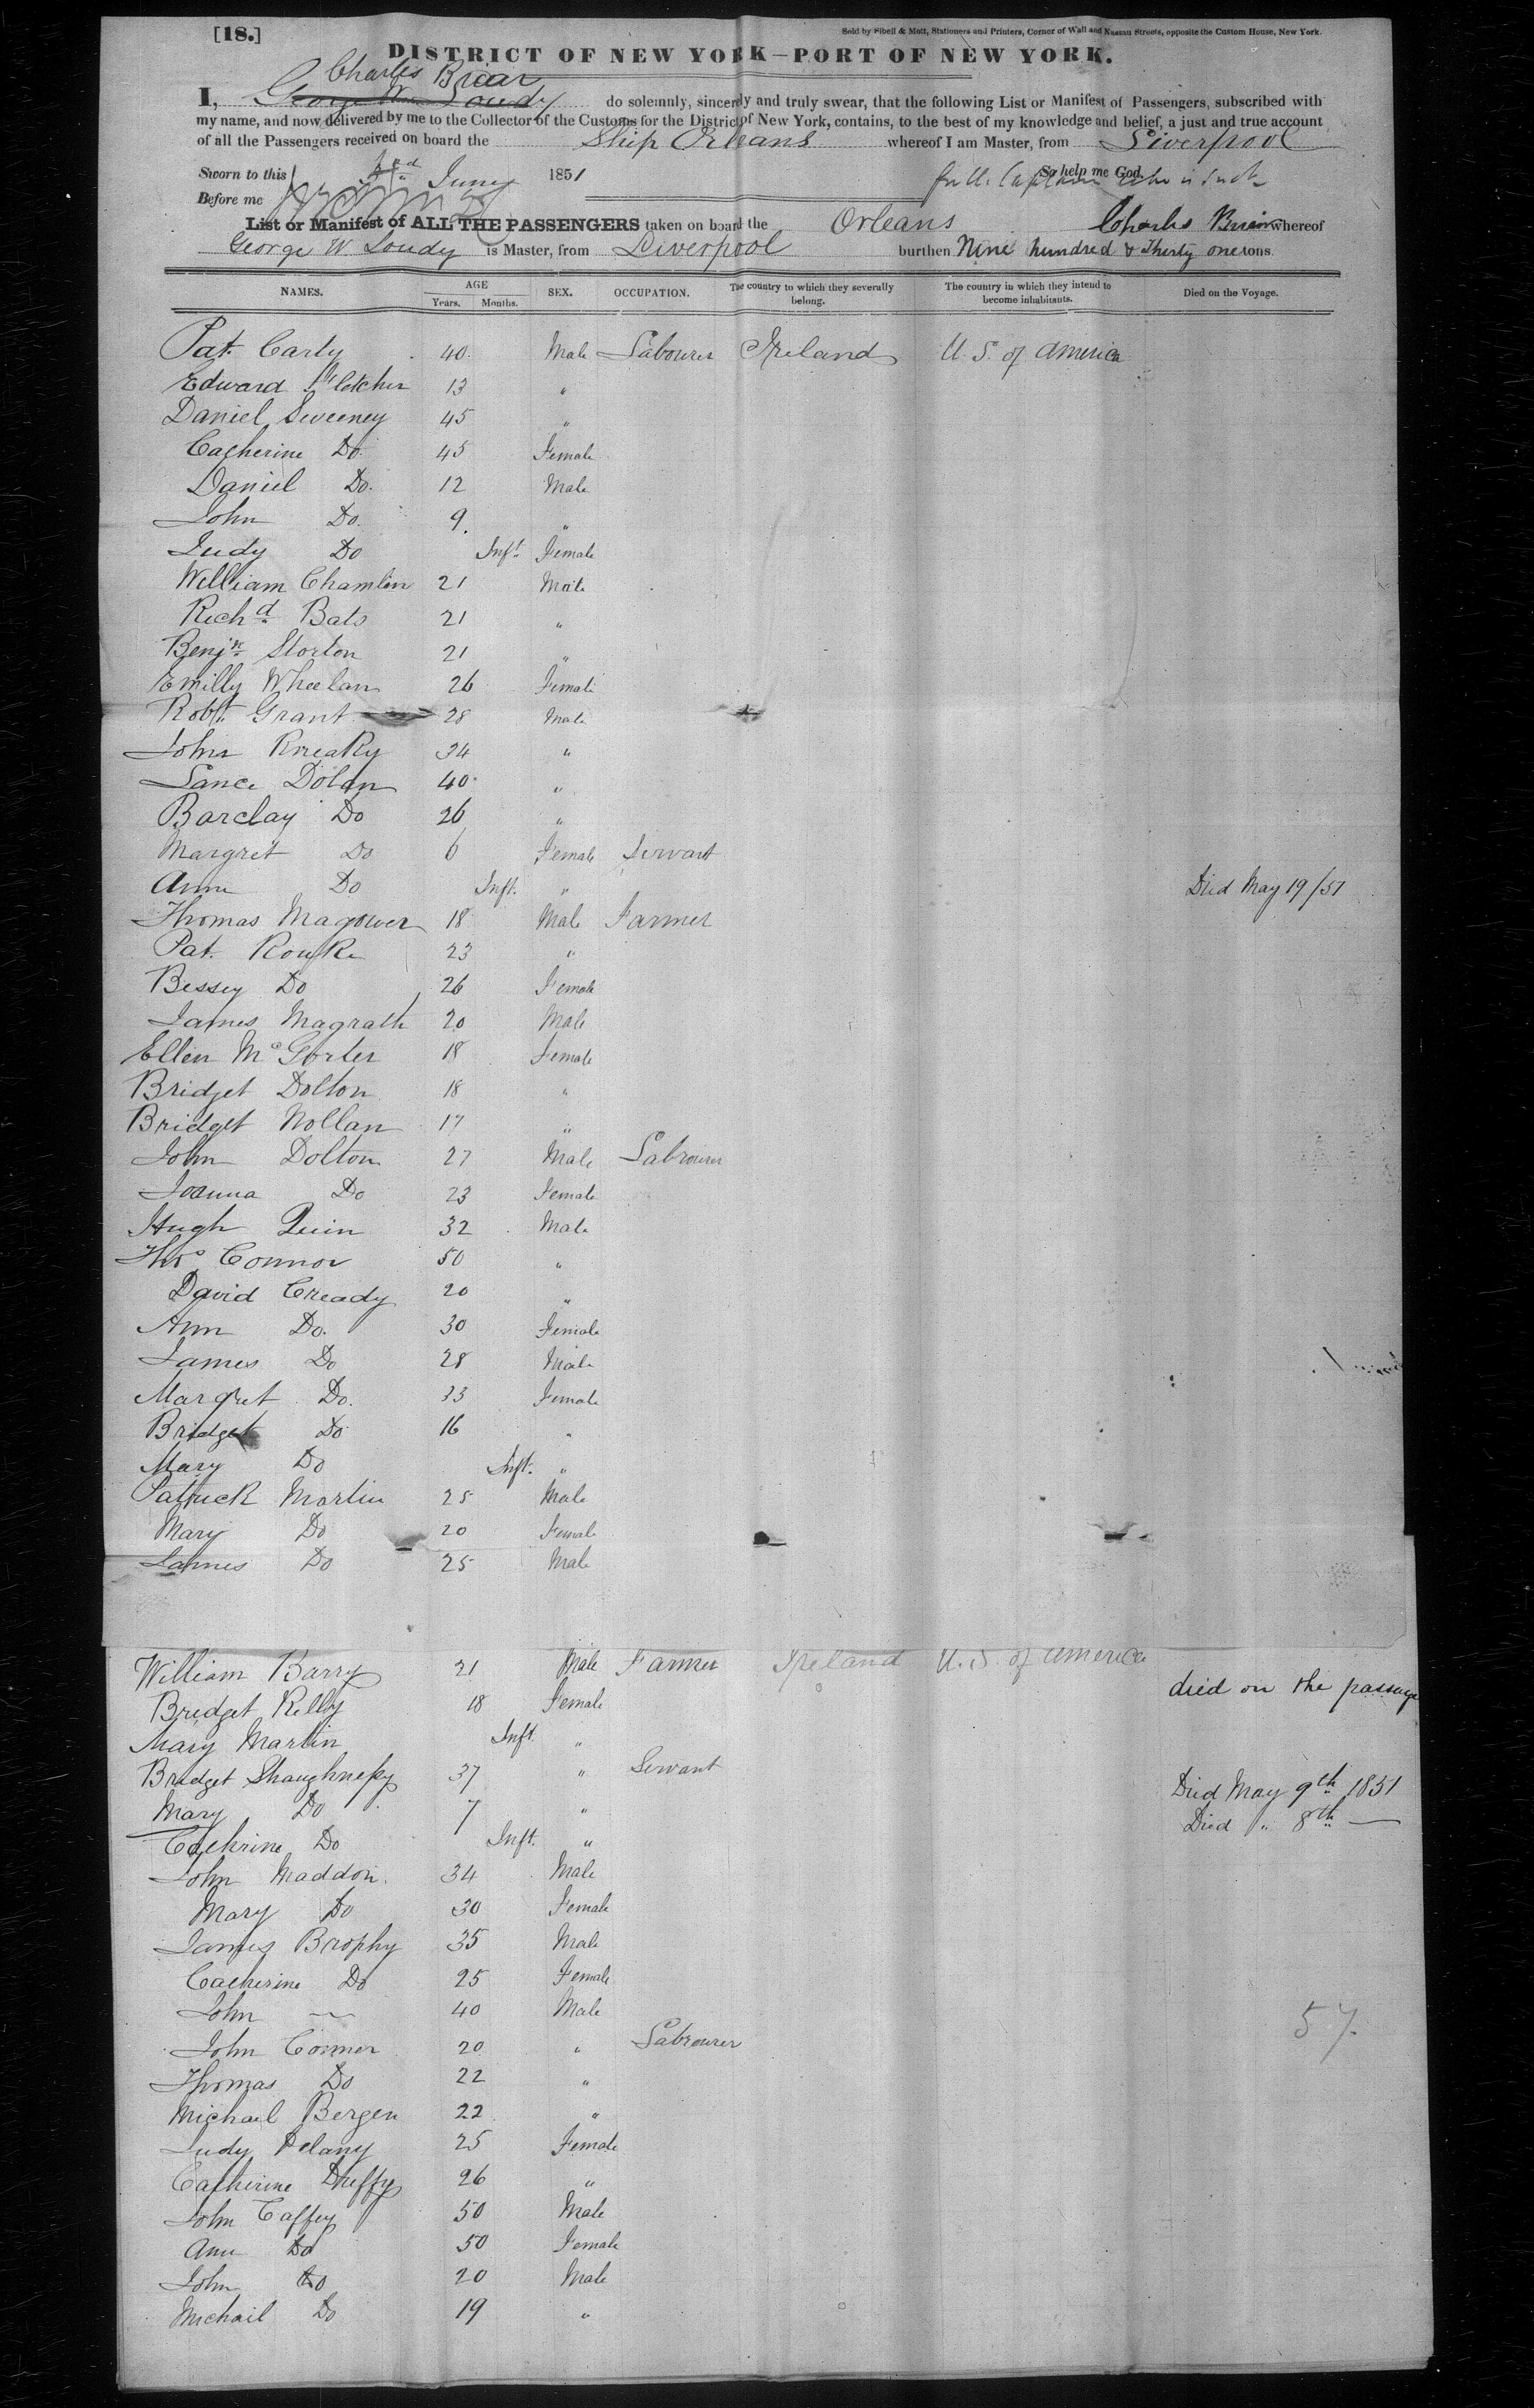 [18.]
Sold by Sibell & Mott, Stationers and Printers, Corner of Wall and Nassau Streets, opposite the Custom House, New York.
DISTRICT OF NEW YORK—PORT OF NEW YORK.
Charles Briar
I, George W. Loudy do solemnly, sincerely and truly swear, that the following List or Manifest of Passengers, subscribed with
my name, and now delivered by me to the Collector of the Customs for the District of New York, contains, to the best of my knowledge and belief, a just and true account
of all the Passengers received on board the Ship Orleans whereof I am Master, from Liverpool
Sworn to this June 1851 So help me God.
Before me
List or Manifest of ALL THE PASSENGERS taken on board the Orleans Charles whereof
George W. Loudy is Master, from Liverpool burthen Nine hundred & Thirty one tons.
NAMES. AGE SEX. OCCUPATION. The country to which they severally belong. The country in which they intend to become inhabitants. Died on the Voyage.
Years. Months.
Pat. Carty 40 Male Labourer Ireland U.S. of America
Edward Fletcher 13 "
Daniel Sweeney 45 "
Catherine Do. 45 Female
Daniel Do. 12 Male
John Do. 9. "
Judy Do Inft. Female
William Chamlin 21 Male
Richd. Bats 21 "
Benjn. Storton 21 "
Emilly Wheelan 26 Female
Robt. Grant 28 Male
John Kneaky 34 "
Lance Dolan 40 "
Barclay Do 26 "
Margret Do 6 Female Servant
Ann Do Inft. " Died May 19/51
Thomas Magower 18 Male Farmer
Pat. Rourke 23 "
Bessey Do 26 Female
James Magrath 20 Male
Ellen McGorter 18 Female
Bridget Dolton 18 "
Bridget Nollan 17 "
John Dolton 27 Male Labrourer
Joanna Do 23 Female
Hugh Quin 32 Male
Thos Connor 50 "
David Cready 20 "
Ann Do. 30 Female
James Do 28 Male
Margret Do. 33 Female
Bridget Do 16 "
Mary Do Inft. "
Patrick Martin 25 Male
Mary Do 20 Female
James Do 25 Male
William Barry 21 Male Farmer Ireland U.S. of America
Bridget Kelly 18 Female died on the passage
Mary Martin Inft. "
Bridget Shaughnessy 37 " Servant
Mary Do 7 " Died May 9th 1851
Cathrine Do Inft. " Died " 8th —
John Maddon 34 Male
Mary Do 30 Female
James Brophy 35 Male
Catherine Do 25 Female
John — 40 Male
57.
John Conner 20 " Labrourer
Thomas Do 22 "
Michael Bergen 22 "
Judy Delany 25 Female
Catherine Duffy 26 "
John Caffey 50 Male
Ann Do 50 Female
John Do 20 Male
Michail Do 19 "